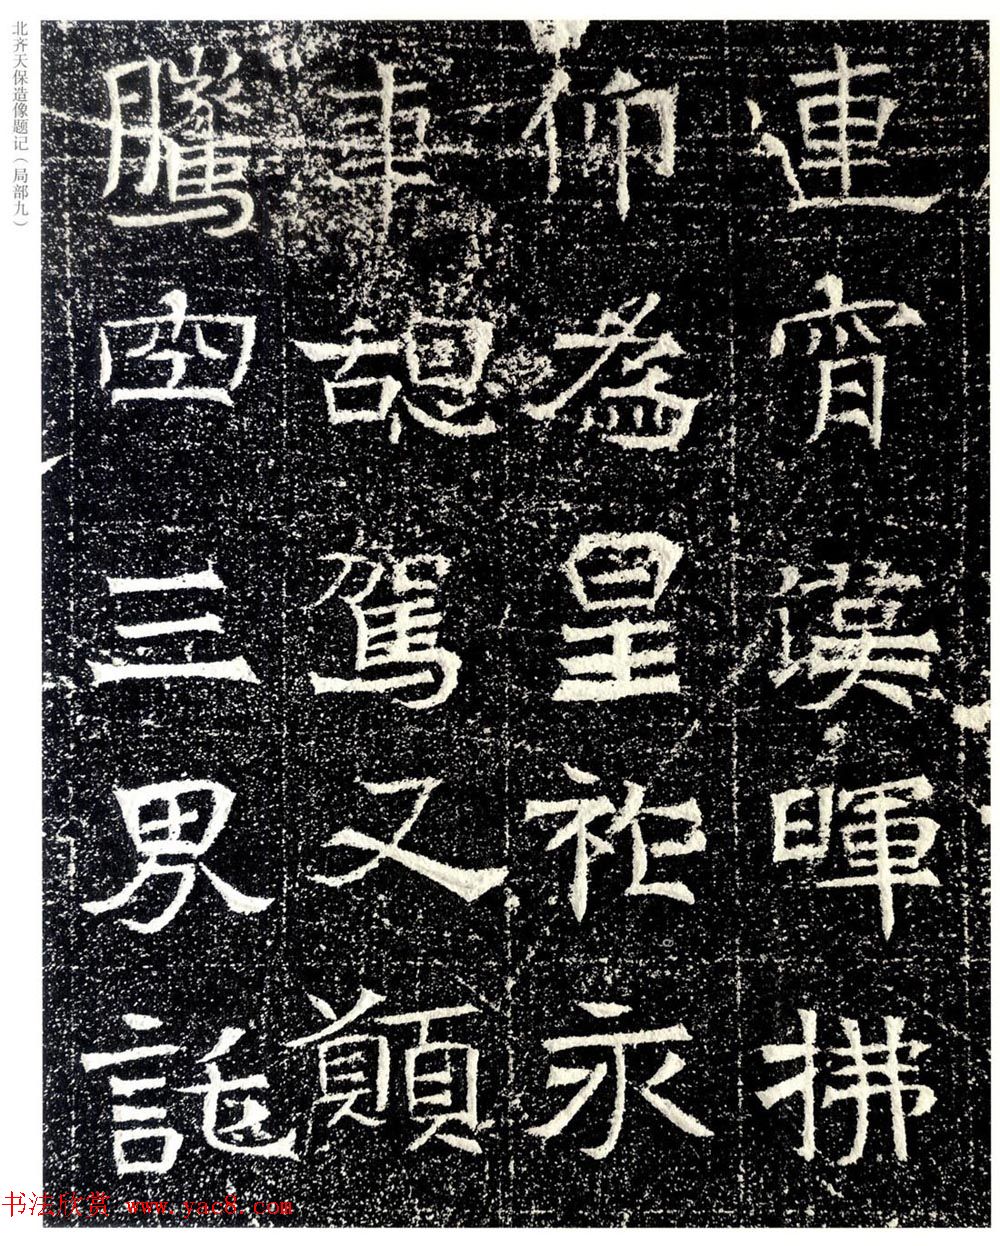 北齐天保造像题记（局部九）
連宵漢暉拂
仰為皇祚永
車憩駕又願
騰空三界託
书法欣赏 www.yac8.com